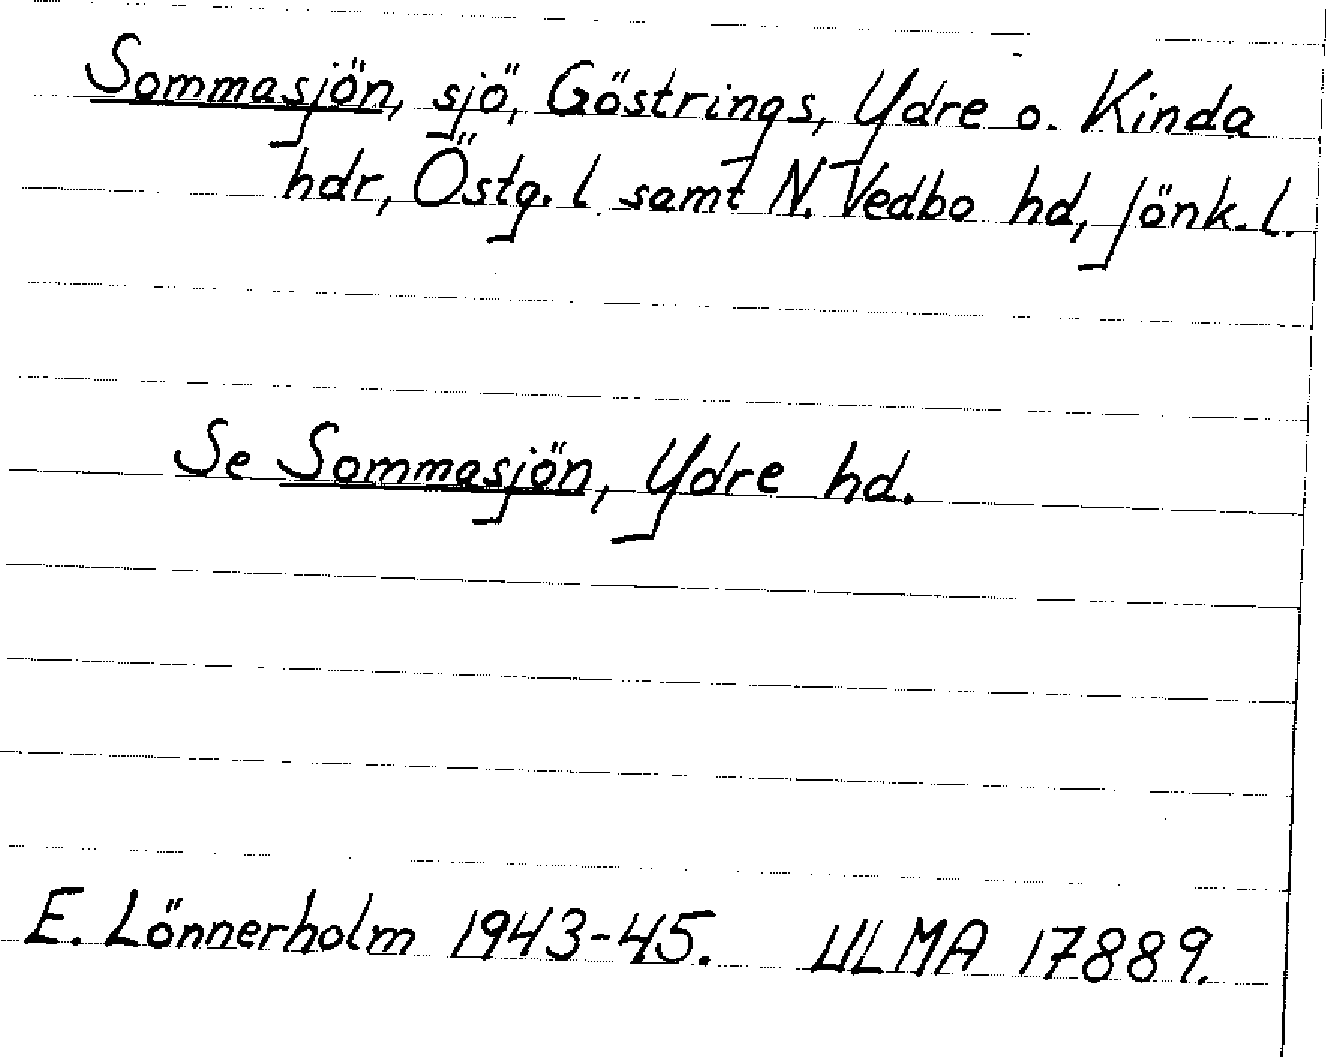 Sommasjön, sjö, Göstrings, Ydre o. Kinda
hdr, Östg. l samt N. Vedbo hd, Jönk. l.
Se Sommasjön, Ydre hd.
E. Lönnerholm 1943-45. ULMA 17889.